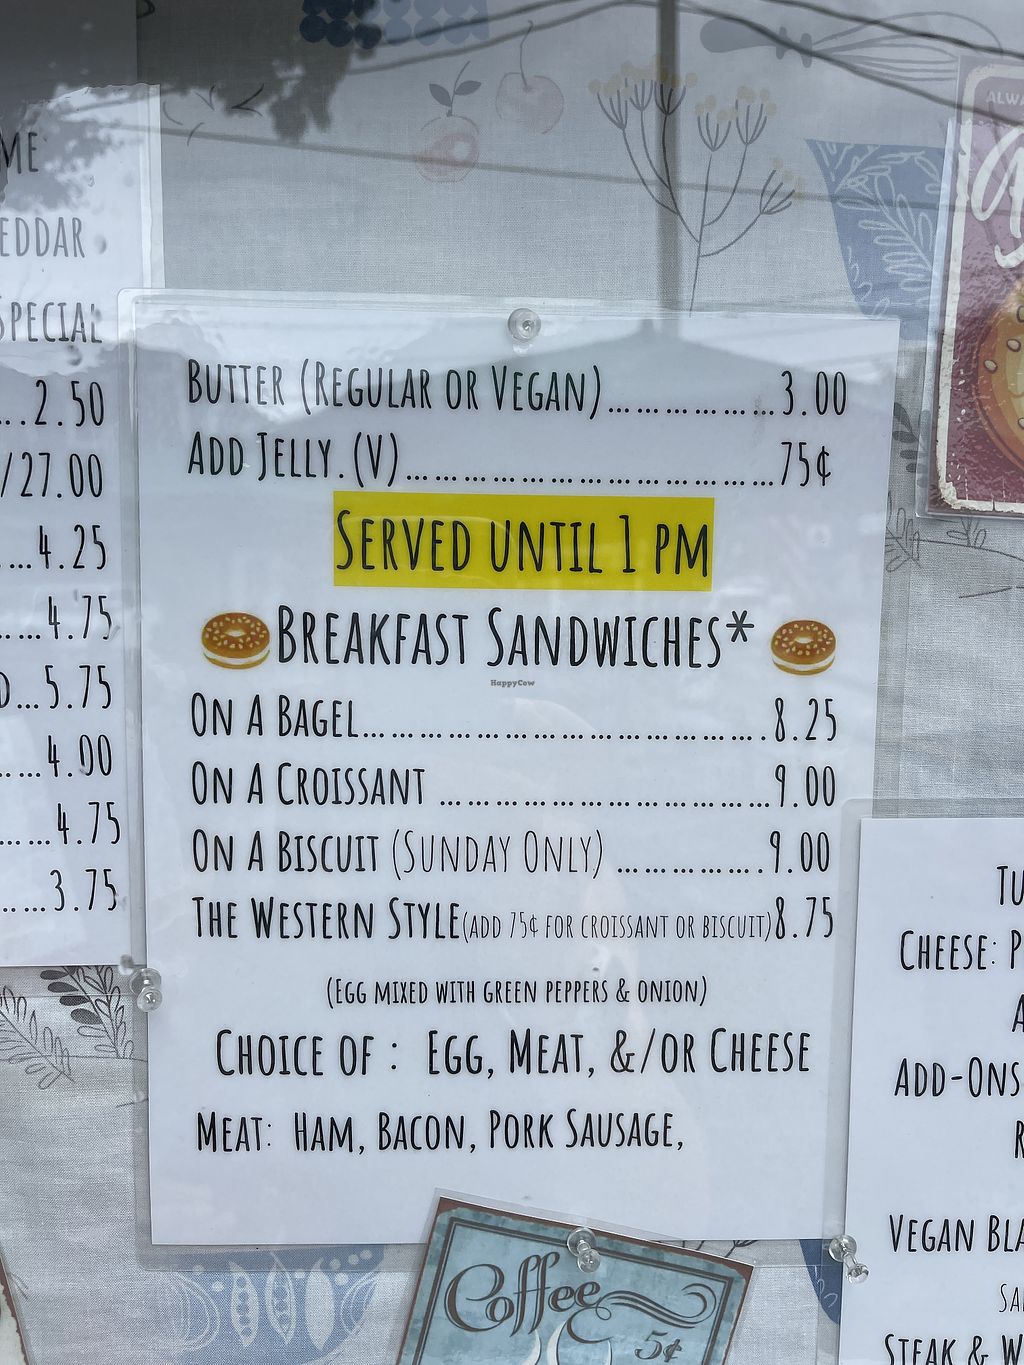 ME
EDDAR
SPECIAL
..2.50
/27.00
...4.25
.....4.75
D...5.75
.....4.00
......4.75
......3.75
BUTTER (REGULAR OR VEGAN)..................3.00
ADD JELLY.(V).......................................75¢
SERVED UNTIL 1 PM
BREAKFAST SANDWICHES*
HappyCow
ON A BAGEL...........................................8.25
ON A CROISSANT ...................................9.00
ON A BISCUIT (SUNDAY ONLY) ................9.00
THE WESTERN STYLE(ADD 75¢ FOR CROISSANT OR BISCUIT)8.75
(EGG MIXED WITH GREEN PEPPERS & ONION)
CHOICE OF : EGG, MEAT, &/OR CHEESE
MEAT: HAM, BACON, PORK SAUSAGE,
Coffee
5¢
ALWA
TU
CHEESE: P
A
ADD-ONS
R
VEGAN BLA
SA
STEAK & W